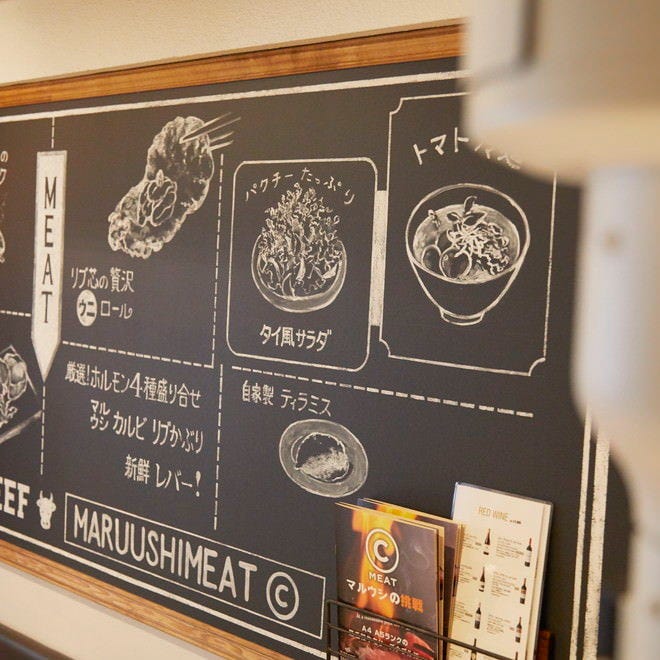 MEAT
リブ芯の贅沢
ウニ ロール
パクチー たっぷり
タイ風サラダ
トマト
厳選!ホルモン4種盛り合せ
マルウシ カルビ リブかぶり
新鮮 レバー!
自家製 ティラミス
EEF
MARUUSHIMEAT ©
© MEAT
マルウシの挑戦
A4 A5ランクの
RED WINE